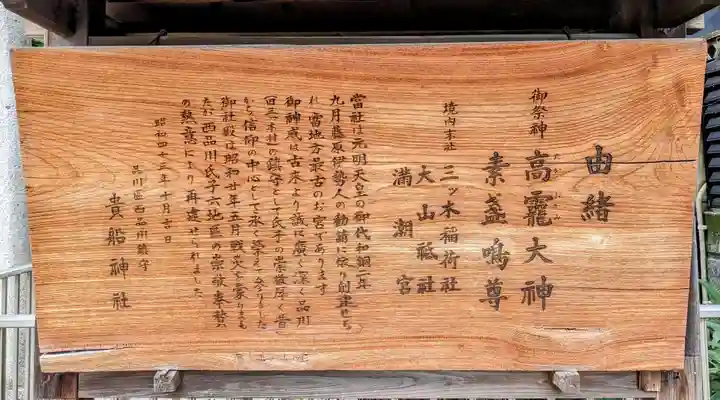 由緒
御祭神 高龗大神
たかおかみ
素盞嗚尊
境内末社 三ッ木稲荷社
大山祗社
満潮宮
當社は元明天皇の御代和銅二年
九月藤原伊勢人の勧請に依り創建せら
れ當地方最古のお宮であります
御神威は古来より誠に廣く深く品川
の鎮守として氏子の崇敬厚く昔
から信仰の中心として永く栄えて参りました
御社殿は昭和廿年五月戦災を蒙りまし
たが西品川氏子六地区の崇敬奉賛
の熱意により再建せられました
昭和四十三年十月吉日
品川区西品川鎮守
貴船神社